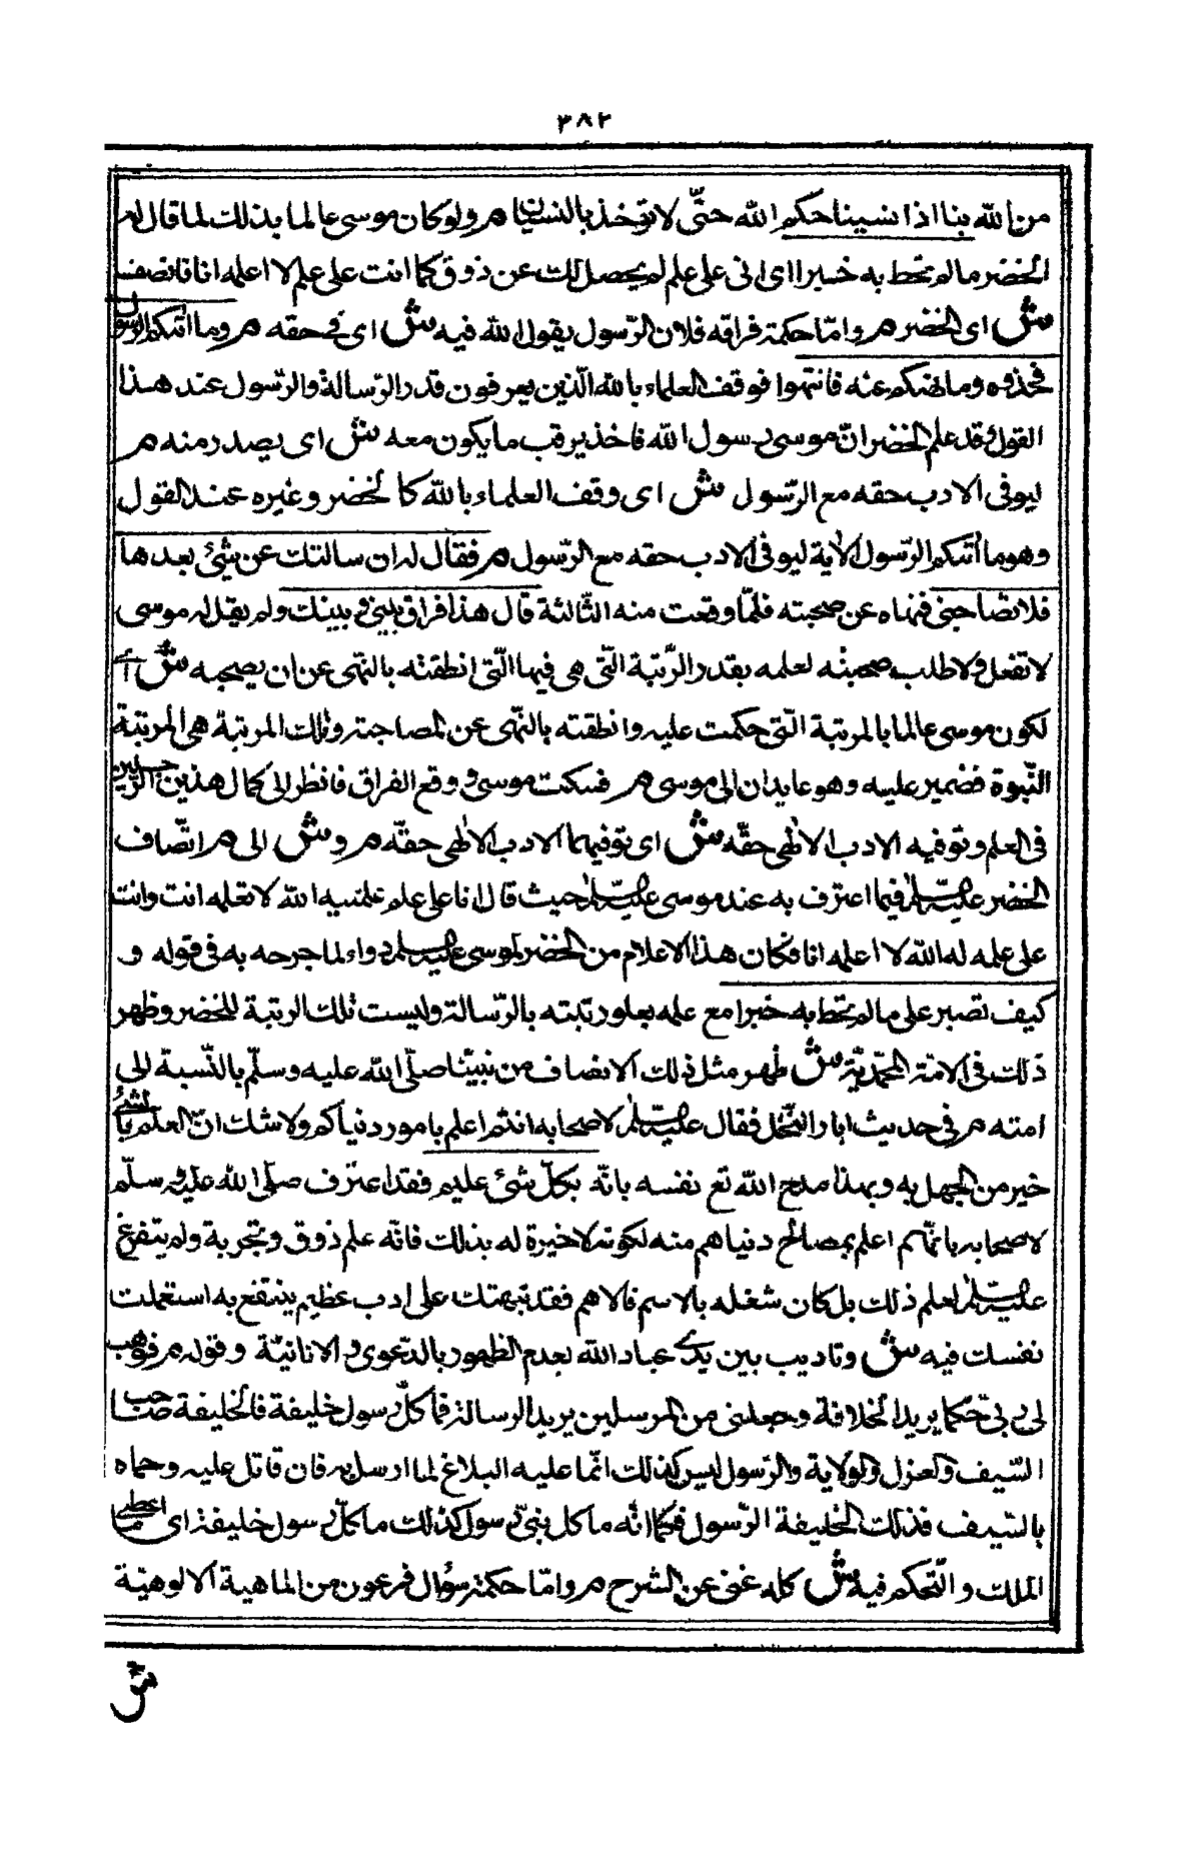 ٣٨٢
من الله بنا اذا نسينا حكم الله حتّى لا نؤخذ بالنسيان م ولو كان موسى عالما بذلك لما قال له
الخضر ما لم تحط به خبرا اى انى على علم لم يحصل لك عن ذوق كما انت على علم لا اعلمه انا فانصف
ش اى الخضر م وامّا حكمة فراقه فلان الرّسول يقول الله فيه ش اى فى حقه م وما اتيكم الرسول
فخذوه وما نهيكم عنه فانتهوا فوقف العلماء بالله الّذين يعرفون قدر الرّسالة والرّسول عند هذا
القول وقد علم الخضر انّ موسى رسول الله فاخذ يرقب ما يكون معه ش اى يصدر منه م
ليوفى الادب حقه مع الرّسول ش اى وقف العلماء بالله كالخضر وغيره عند القول
وهو ما اتيكم الرّسول الاية ليوفى الادب حقه مع الرّسول م فقال له ان سالتك عن شئ بعدها
فلا تصاحبنى فنهاه عن صحبته فلمّا وقعت منه الثّالثة قال هذا فراق بينى وبينك ولم يقل له موسى
لا تفعل ولا طلب صحبته لعلمه بقدر الرّتبة الّتى هى فيها الّتى انطقته بالنّهى عن ان يصحبه ش اى
لكون موسى عالما بالمرتبة الّتى حكمت عليه وانطقته بالنّهى عن المصاحبة وتلك المرتبة هى المرتبة
النّبوة فضمير عليه وهو عايدان الى موسى م فسكت موسى ووقع الفراق فانظر الى كمال هذين الرّجلين
فى العلم وتوفيه الادب الالٰهى حقّه ش اى توفيهما الادب الالٰهى حقّه م و ش الى م اتّصاف
الخضر عليه السّلام فيما اعترف به عند موسى عليه السّلام حيث قال انا على علم علمنيه الله لا تعلمه انت وانت
على علمه له الله لا اعلمه انا فكان هذا الاعلام من الخضر لموسى عليه السلام دواء لما جرحه به فى قوله و
كيف تصبر على ما لم تحط به خبرا مع علمه بعلو رتبته بالرّسالة وليست تلك الرتبة للخضر وظهر
ذلك فى الامّة المحمّديّة ش ظهر مثل ذلك الانصاف من نبيّنا صلّى الله عليه وسلّم بالنّسبة الى
امته م فى حديث ابار النّخل فقال عليه السّلام لاصحابه انتم اعلم بامور دنياكم ولا شك انّ العلم بالشئ
خير من الجهل به وبهذا مدح الله تع نفسه بانّه بكلّ شئ عليم فقد اعترف صلّى الله عليه وسلّم
لاصحابه بانّهم اعلم بمصالح دنياهم منه لكونه لا خبرة له بذلك فانّه علم ذوق وتجربة ولم يتفرغ
عليه السّلام لعلم ذلك بل كان شغله بالاهم فالاهم فقد نبهتك على ادب عظيم ينتفع به استعملت
نفسك فيه ش وتاديب بين يدى عباد الله بعدم الظهور بالدّعوى والانانيّة وقوله م فوهب
لى ربّى حكما يريد الخلافة وجعلنى من المرسلين يريد الرسالة فما كلّ رسول خليفة فالخليفة صاحب
السّيف والعزل والولاية والرّسول ليس كذلك انّما عليه البلاغ لما ارسل به فان قاتل عليه وحماه
بالسّيف فذلك الخليفة الرّسول فكما انّه ما كل نبىّ رسول كذلك ما كلّ رسول خليفة اى ما اعطى
الملك والتّحكم فيه ش كله غنى عن الشرح م وامّا حكمة سؤال فرعون من الماهية الالوهيّة
ش